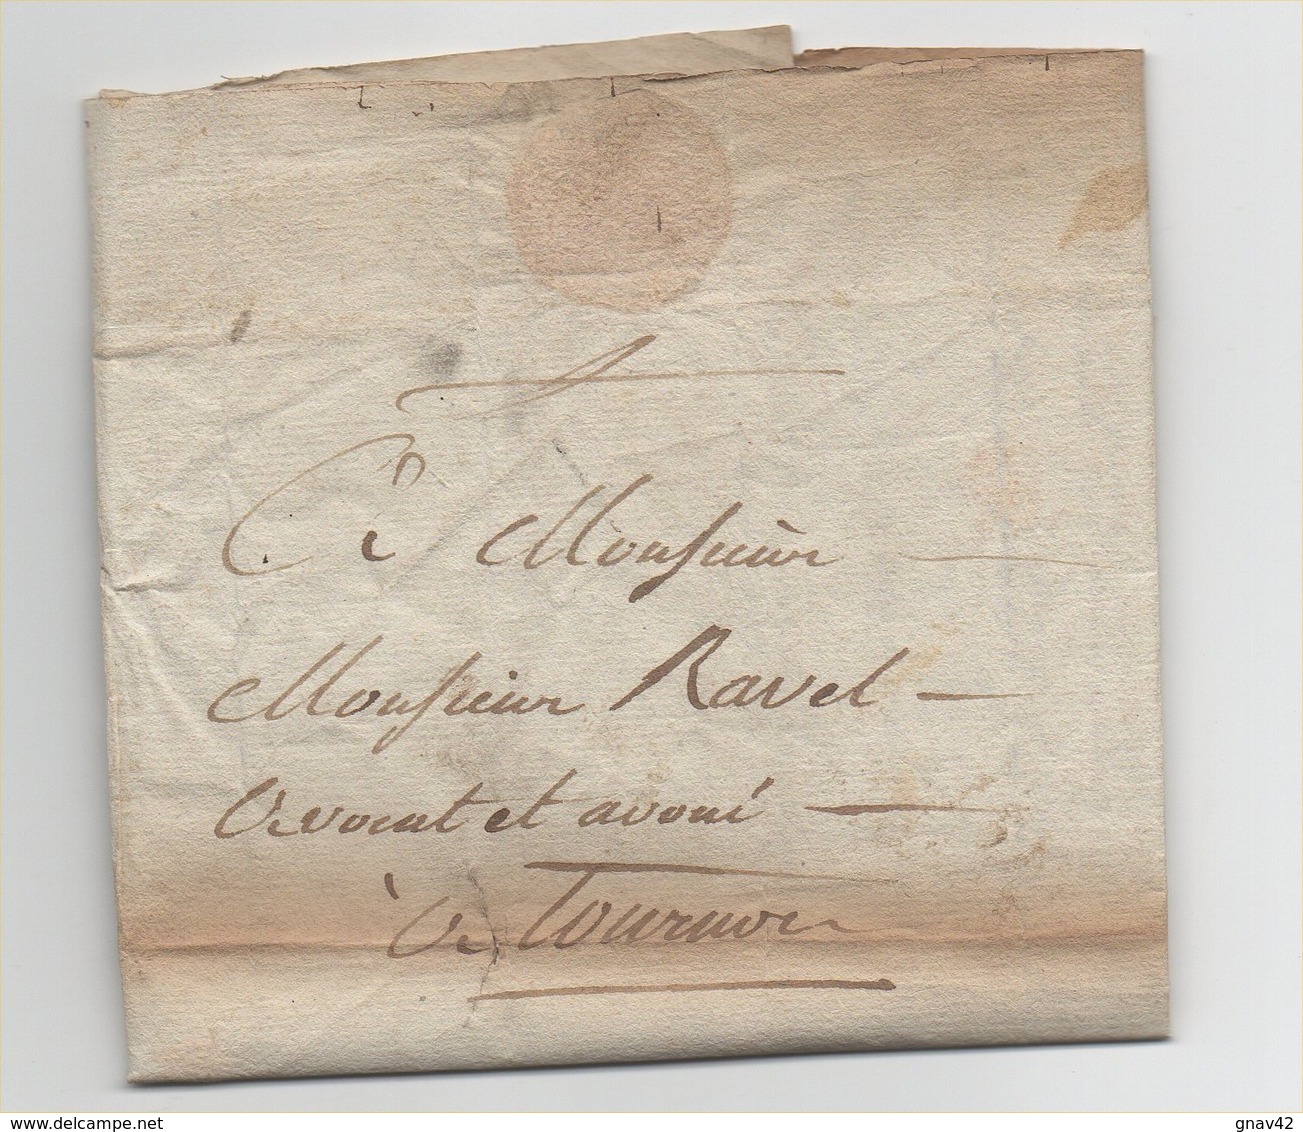 A Monsieur
Monsieur Ravel
Avocat et avoué
à Tournon
www.delcampe.net
gnav42